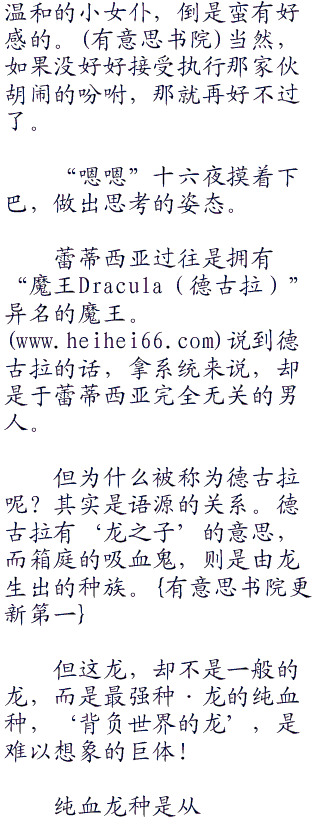 温和的小女仆，倒是蛮有好
感的。(有意思书院)当然，
如果没好好接受执行那家伙
胡闹的吩咐，那就再好不过
了。
“嗯嗯”十六夜摸着下
巴，做出思考的姿态。
蕾蒂西亚过往是拥有
“魔王Dracula（德古拉）”
异名的魔王。
(www.heihei66.com)说到德
古拉的话，拿系统来说，却
是于蕾蒂西亚完全无关的男
人。
但为什么被称为德古拉
呢？其实是语源的关系。德
古拉有‘龙之子’的意思，
而箱庭的吸血鬼，则是由龙
生出的种族。{有意思书院更
新第一}
但这龙，却不是一般的
龙，而是最强种·龙的纯血
种，‘背负世界的龙’，是
难以想象的巨体！
纯血龙种是从